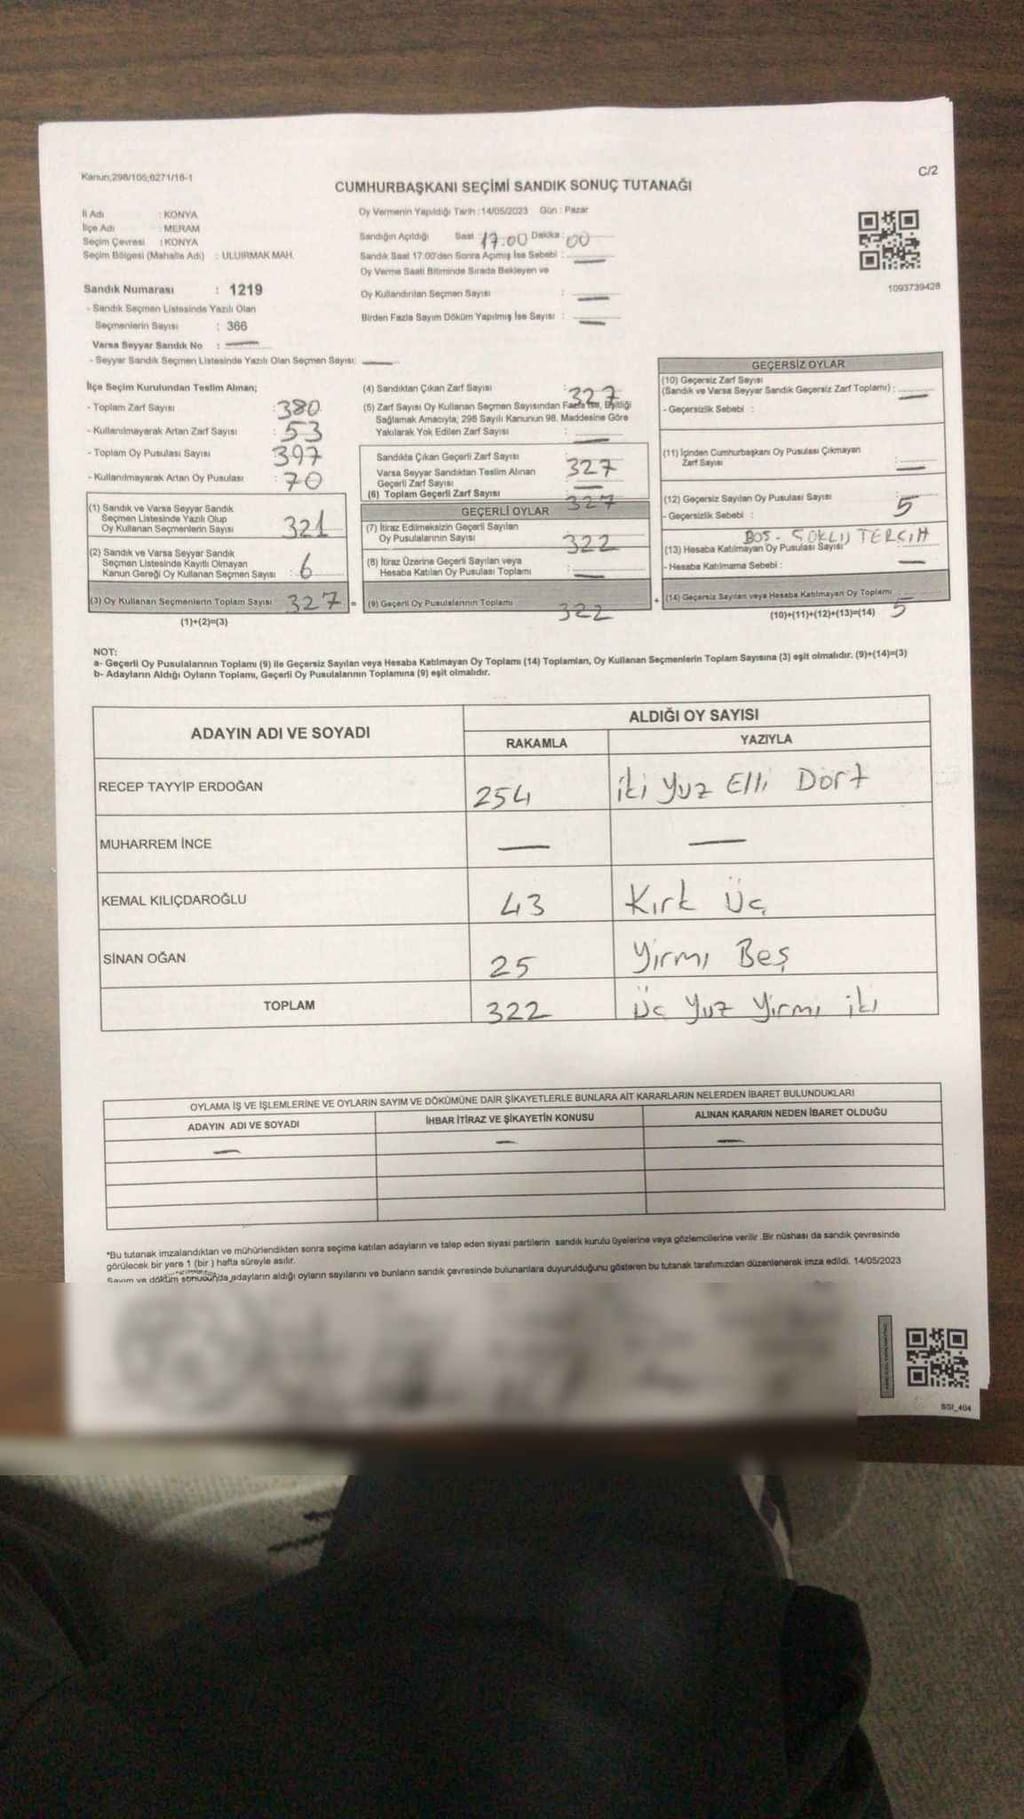 Kanun;298/105;6271/16-1
C/2
CUMHURBAŞKANI SEÇİMİ SANDIK SONUÇ TUTANAĞI
İl Adı : KONYA
İlçe Adı : MERAM
Seçim Çevresi : KONYA
Seçim Bölgesi (Mahalle Adı) : ULUIRMAK MAH.
Sandık Numarası : 1219
- Sandık Seçmen Listesinde Yazılı Olan
Seçmenlerin Sayısı : 366
Varsa Seyyar Sandık No :
- Seyyar Sandık Seçmen Listesinde Yazılı Olan Seçmen Sayısı:
Oy Vermenin Yapıldığı Tarih : 14/05/2023 Gün : Pazar
Sandığın Açıldığı Saat : 17:00 Dakika : 00
Sandık Saat 17.00'den Sonra Açılmış İse Sebebi :
Oy Verme Saati Bitiminde Sırada Bekleyen ve
Oy Kullandırılan Seçmen Sayısı :
Birden Fazla Sayım Döküm Yapılmış İse Sayısı :
1093739428
İlçe Seçim Kurulundan Teslim Alınan;
- Toplam Zarf Sayısı : 380
- Kullanılmayarak Artan Zarf Sayısı : 53
- Toplam Oy Pusulası Sayısı : 397
- Kullanılmayarak Artan Oy Pusulası : 70
(1) Sandık ve Varsa Seyyar Sandık
Seçmen Listesinde Yazılı Olup
Oy Kullanan Seçmenlerin Sayısı : 321
(2) Sandık ve Varsa Seyyar Sandık
Seçmen Listesinde Kayıtlı Olmayan
Kanun Gereği Oy Kullanan Seçmen Sayısı : 6
(3) Oy Kullanan Seçmenlerin Toplam Sayısı : 327 =
(1)+(2)=(3)
(4) Sandıktan Çıkan Zarf Sayısı : 327
(5) Zarf Sayısı Oy Kullanan Seçmen Sayısından Fazla İse, Eşitliği
Sağlamak Amacıyla, 298 Sayılı Kanunun 98. Maddesine Göre
Yakılarak Yok Edilen Zarf Sayısı :
Sandıkta Çıkan Geçerli Zarf Sayısı : 327
Varsa Seyyar Sandıktan Teslim Alınan
Geçerli Zarf Sayısı :
(6) Toplam Geçerli Zarf Sayısı : 327
GEÇERLİ OYLAR
(7) İtiraz Edilmeksizin Geçerli Sayılan
Oy Pusulalarının Sayısı : 322
(8) İtiraz Üzerine Geçerli Sayılan veya
Hesaba Katılan Oy Pusulası Toplamı :
(9) Geçerli Oy Pusulalarının Toplamı : 322 +
GEÇERSİZ OYLAR
(10) Geçersiz Zarf Sayısı
(Sandık ve Varsa Seyyar Sandık Geçersiz Zarf Toplamı) :
- Geçersizlik Sebebi :
(11) İçinden Cumhurbaşkanı Oy Pusulası Çıkmayan
Zarf Sayısı :
(12) Geçersiz Sayılan Oy Pusulası Sayısı : 5
- Geçersizlik Sebebi : BOŞ -  TERCİH
(13) Hesaba Katılmayan Oy Pusulası Sayısı :
- Hesaba Katılmama Sebebi :
(14) Geçersiz Sayılan veya Hesaba Katılmayan Oy Toplamı : 5
(10)+(11)+(12)+(13)=(14)
NOT:
a- Geçerli Oy Pusulalarının Toplamı (9) ile Geçersiz Sayılan veya Hesaba Katılmayan Oy Toplamı (14) Toplamları, Oy Kullanan Seçmenlerin Toplam Sayısına (3) eşit olmalıdır. (9)+(14)=(3)
b- Adayların Aldığı Oyların Toplamı, Geçerli Oy Pusulalarının Toplamına (9) eşit olmalıdır.
ADAYIN ADI VE SOYADI
ALDIĞI OY SAYISI
RAKAMLA YAZIYLA
RECEP TAYYİP ERDOĞAN 254 iki Yuz Elli Dört
MUHARREM İNCE
KEMAL KILIÇDAROĞLU 43 Kırk Üç
SİNAN OĞAN 25 Yirmi Beş
TOPLAM 322 Üç Yuz Yirmi iki
OYLAMA İŞ VE İŞLEMLERİNE VE OYLARIN SAYIM VE DÖKÜMÜNE DAİR ŞİKAYETLERLE BUNLARA AİT KARARLARIN NELERDEN İBARET BULUNDUKLARI
ADAYIN ADI VE SOYADI İHBAR İTİRAZ VE ŞİKAYETİN KONUSU ALINAN KARARIN NEDEN İBARET OLDUĞU
*Bu tutanak imzalandıktan ve mühürlendikten sonra seçime katılan adayların ve talep eden siyasi partilerin sandık kurulu üyelerine veya gözlemcilerine verilir .Bir nüshası da sandık çevresinde
görülecek bir yere 1 (bir ) hafta süreyle asılır.
Sayım ve döküm sonucunda,adayların aldığı oyların sayılarını ve bunların sandık çevresinde bulunanlara duyurulduğunu gösteren bu tutanak tarafımızdan düzenlenerek imza edildi. 14/05/2023